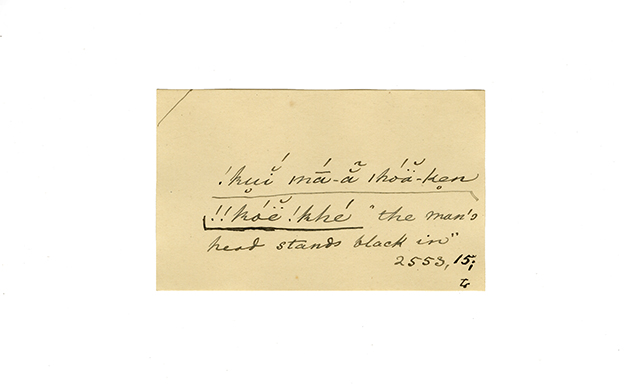 !kụĭ́ mā́-ã̆ ǀhóä̆-kẹn
!!kóë̆ !khé "the man's
head stands black in"
2553, 15;